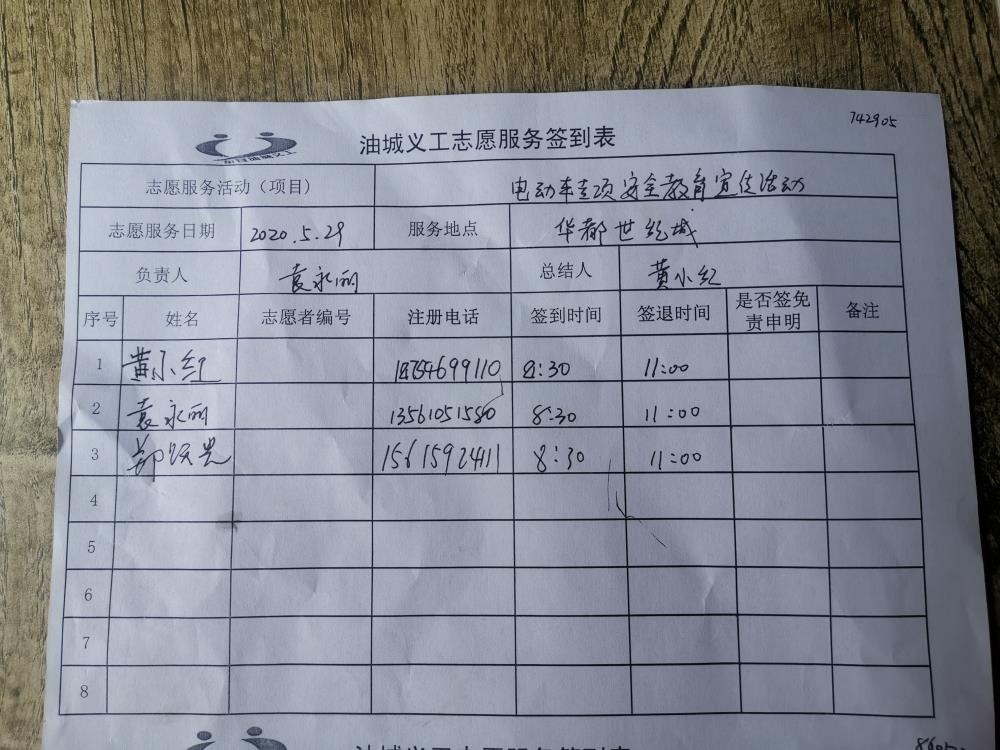 742905
油城义工志愿服务签到表
志愿服务活动（项目） 电动车专项安全教育宣传活动
志愿服务日期 2020.5.29 服务地点 华都世纪城
负责人 袁永丽 总结人 黄小红
序号 姓名 志愿者编号 注册电话 签到时间 签退时间 是否签免责申明 备注
1 黄小红 8:30 11:00
2 袁永丽 13561051580 8:30 11:00
3 郑 15615924111 8:30 11:00
4
5
6
7
8
油城义工志愿服务签到表